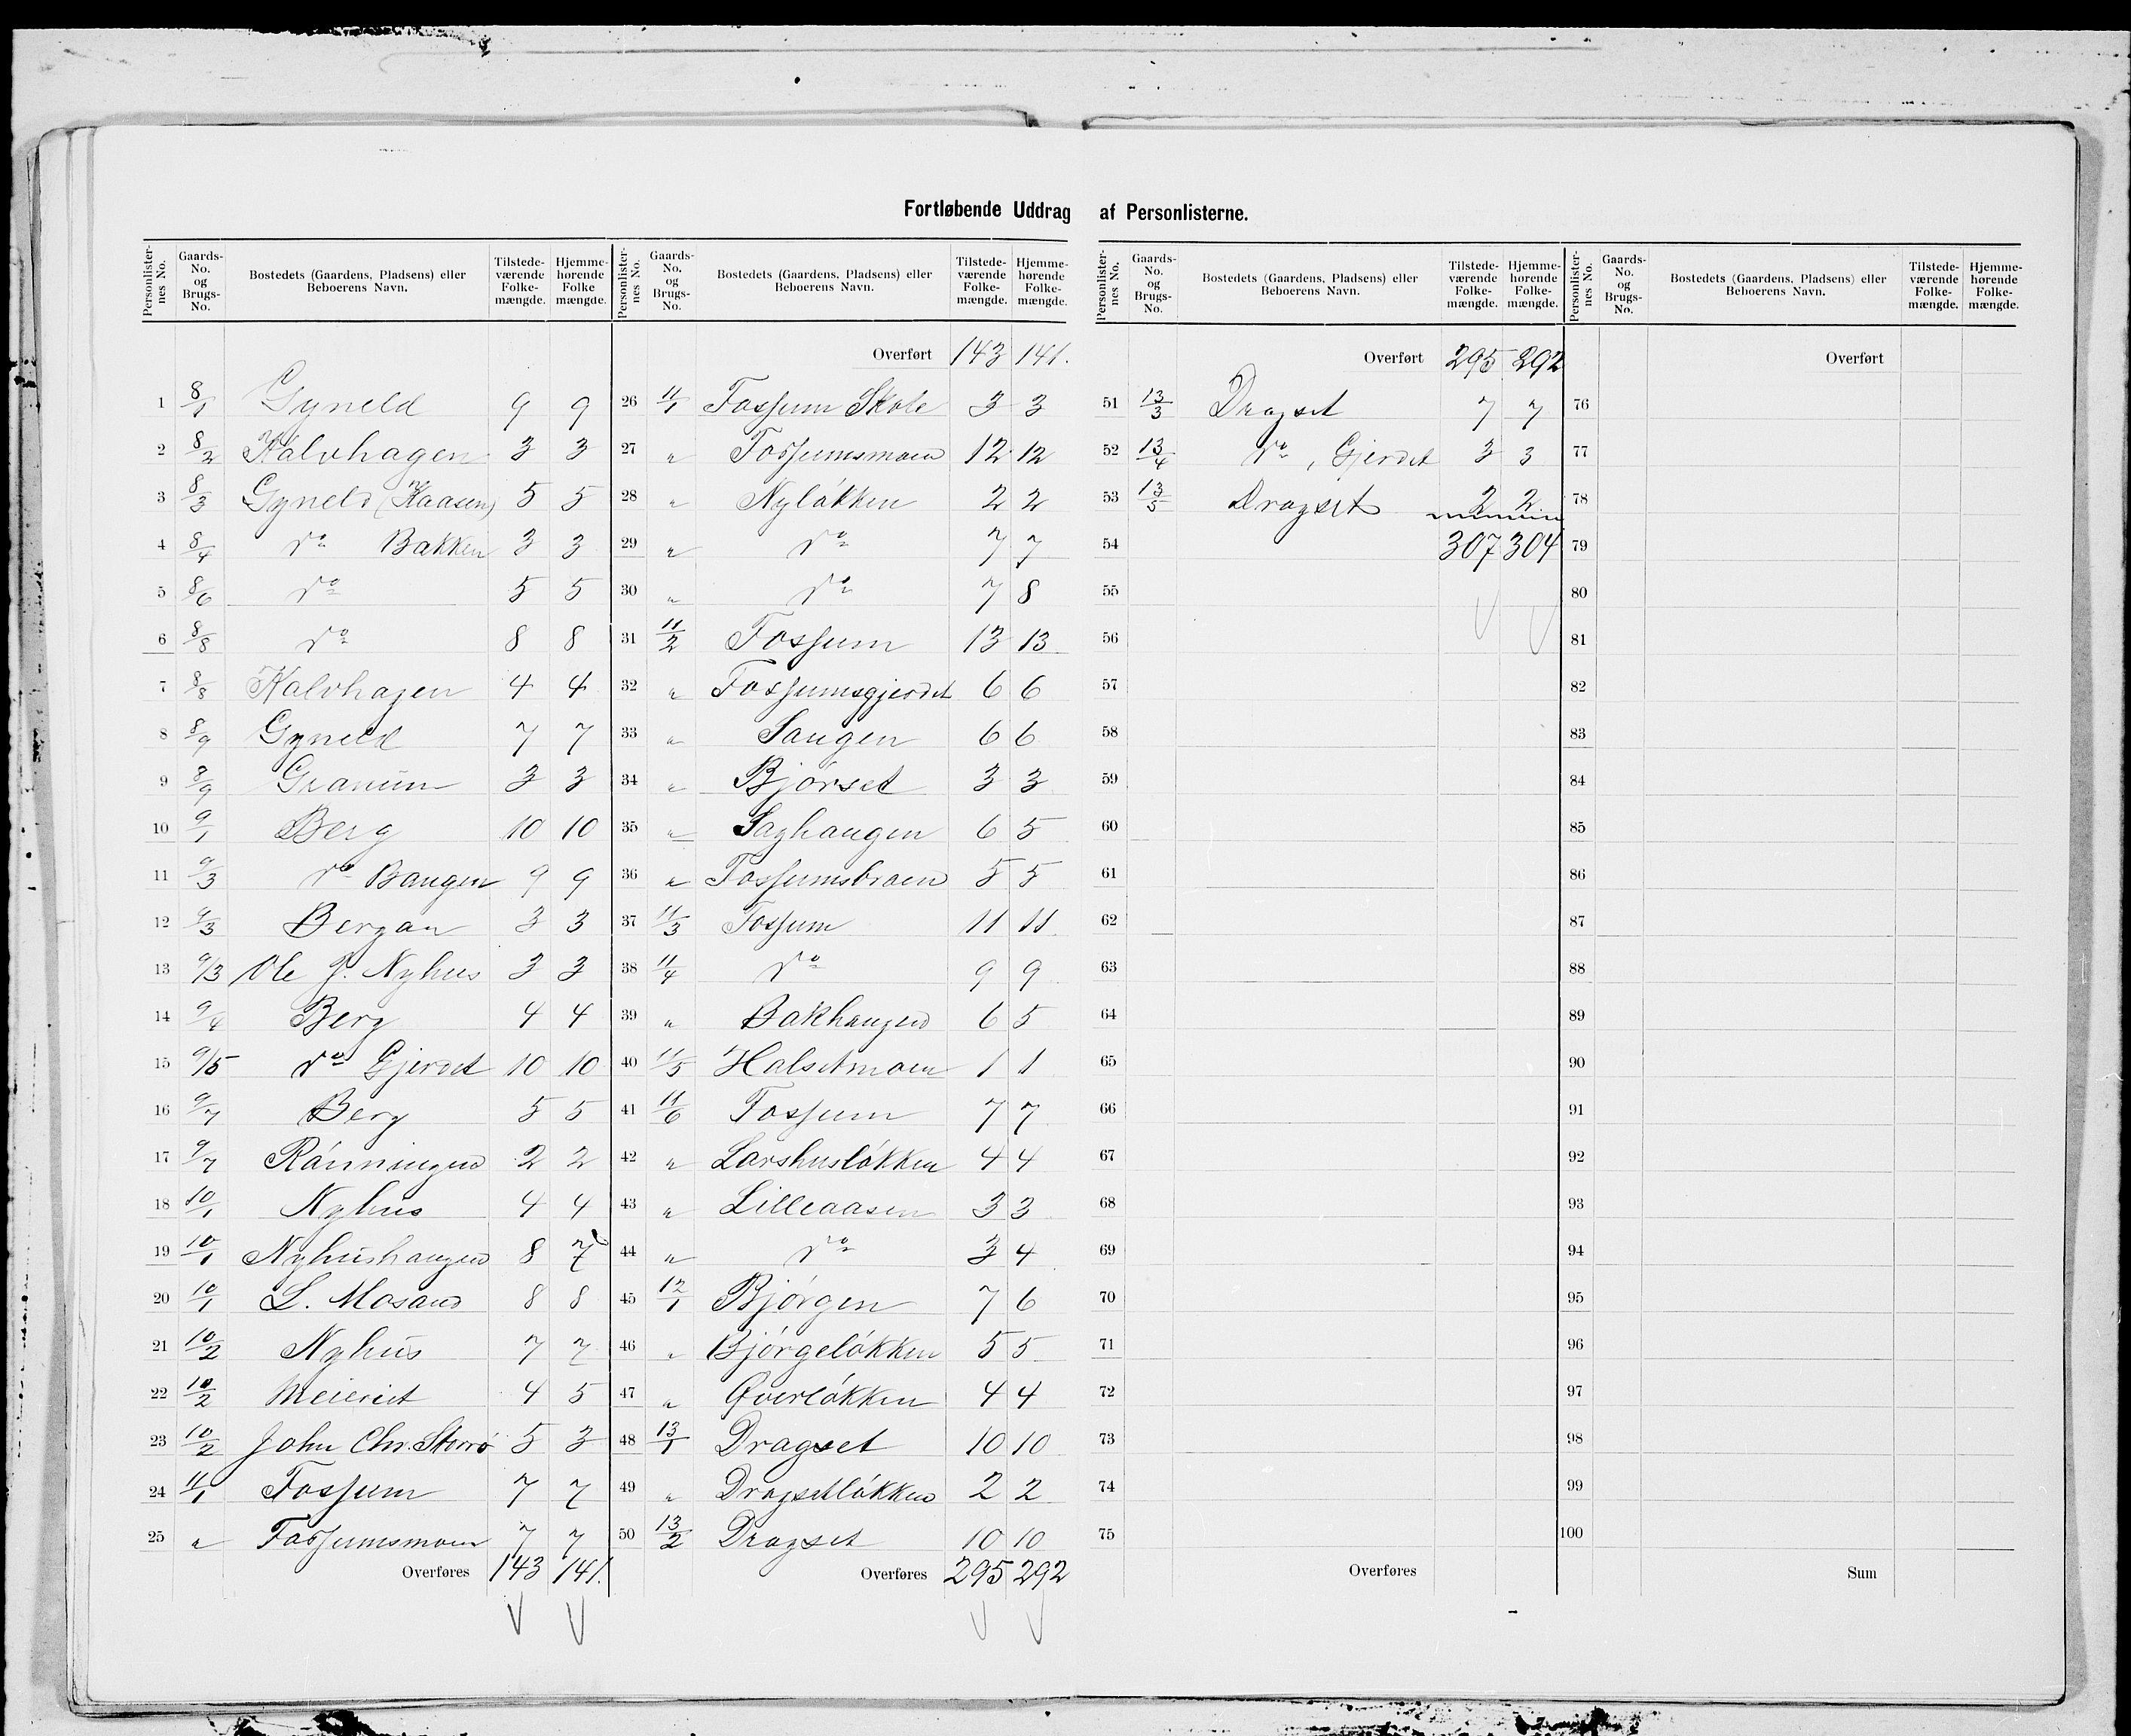 Fortløbende Uddrag af Personlisterne.
Personlisternes No. | Gaards-No. og Brugs-No. | Bostedets (Gaardens, Pladsens) eller Beboerens Navn. | Tilstedeværende Folkemængde. | Hjemmehørende Folkemængde.
1 8/1 Gyneld 9 9
2 8/2 Kalvhagen 3 3
3 8/3 Gyneld (Haasen) 5 5
4 8/4 do Bakken 3 3
5 8/6 do 5 5
6 8/8 do 8 8
7 8/8 Kalvhagen 4 4
8 8/9 Gyneld 7 7
9 8/9 Granum 3 3
10 9/1 Berg 10 10
11 9/3 do Baugen 9 9
12 9/3 Bergan 3 3
13 9/3 Ole J. Nyhus 3 3
14 9/4 Berg 4 4
15 9/5 do Gjerdet 10 10
16 9/7 Berg 5 5
17 9/7 Rönningen 2 2
18 10/1 Nyhus 4 4
19 10/1 Nyhushaugen 8 7
20 10/1 L. Mosand 8 8
21 10/2 Nyhus 7 7
22 10/2 Meieriet 4 5
23 10/2 John Chr. Storrö 5 3
24 11/1 Fossum 7 7
25 " Fossumsmoen 7 7
Overføres 143 141.
Personlisternes No. | Gaards-No. og Brugs-No. | Bostedets (Gaardens, Pladsens) eller Beboerens Navn. | Tilstedeværende Folkemængde. | Hjemmehørende Folkemængde.
Overført 143 141.
26 11/1 Fossum Skole 3 3
27 " Fossumsmoen 12 12
28 " Nylökken 2 2
29 " do 7 7
30 " do 7 8
31 11/2 Fossum 13 13
32 " Fossumsgjerdet 6 6
33 " Saugen 6 6
34 " Bjørset 3 3
35 " Saghaugen 6 5
36 " Fossumsbroen 5 5
37 11/3 Fossum 11 11
38 11/4 do 9 9
39 " Bakhaugen 6 5
40 11/5 Halsetmoen 1 1
41 11/6 Fossum 7 7
42 " Larshuslökken 4 4
43 " Lilleaasen 3 3
44 " do 3 4
45 12/1 Bjørgen 7 6
46 " Bjørgelökken 5 5
47 " Øverlökken 4 4
48 13/1 Dragset 10 10
49 " Dragsetlökken 2 2
50 13/2 Dragset 10 10
Overføres 295 292
Personlisternes No. | Gaards-No. og Brugs-No. | Bostedets (Gaardens, Pladsens) eller Beboerens Navn. | Tilstedeværende Folkemængde. | Hjemmehørende Folkemængde.
Overført 295 292
51 13/3 Dragset 7 7
52 13/4 do, Gjerdet 3 3
53 13/5 Dragset 2 2
54 307 304
55
56
57
58
59
60
61
62
63
64
65
66
67
68
69
70
71
72
73
74
75
Overføres
Personlisternes No. | Gaards-No. og Brugs-No. | Bostedets (Gaardens, Pladsens) eller Beboerens Navn. | Tilstedeværende Folkemængde. | Hjemmehørende Folkemængde.
Overført
76
77
78
79
80
81
82
83
84
85
86
87
88
89
90
91
92
93
94
95
96
97
98
99
100
Sum